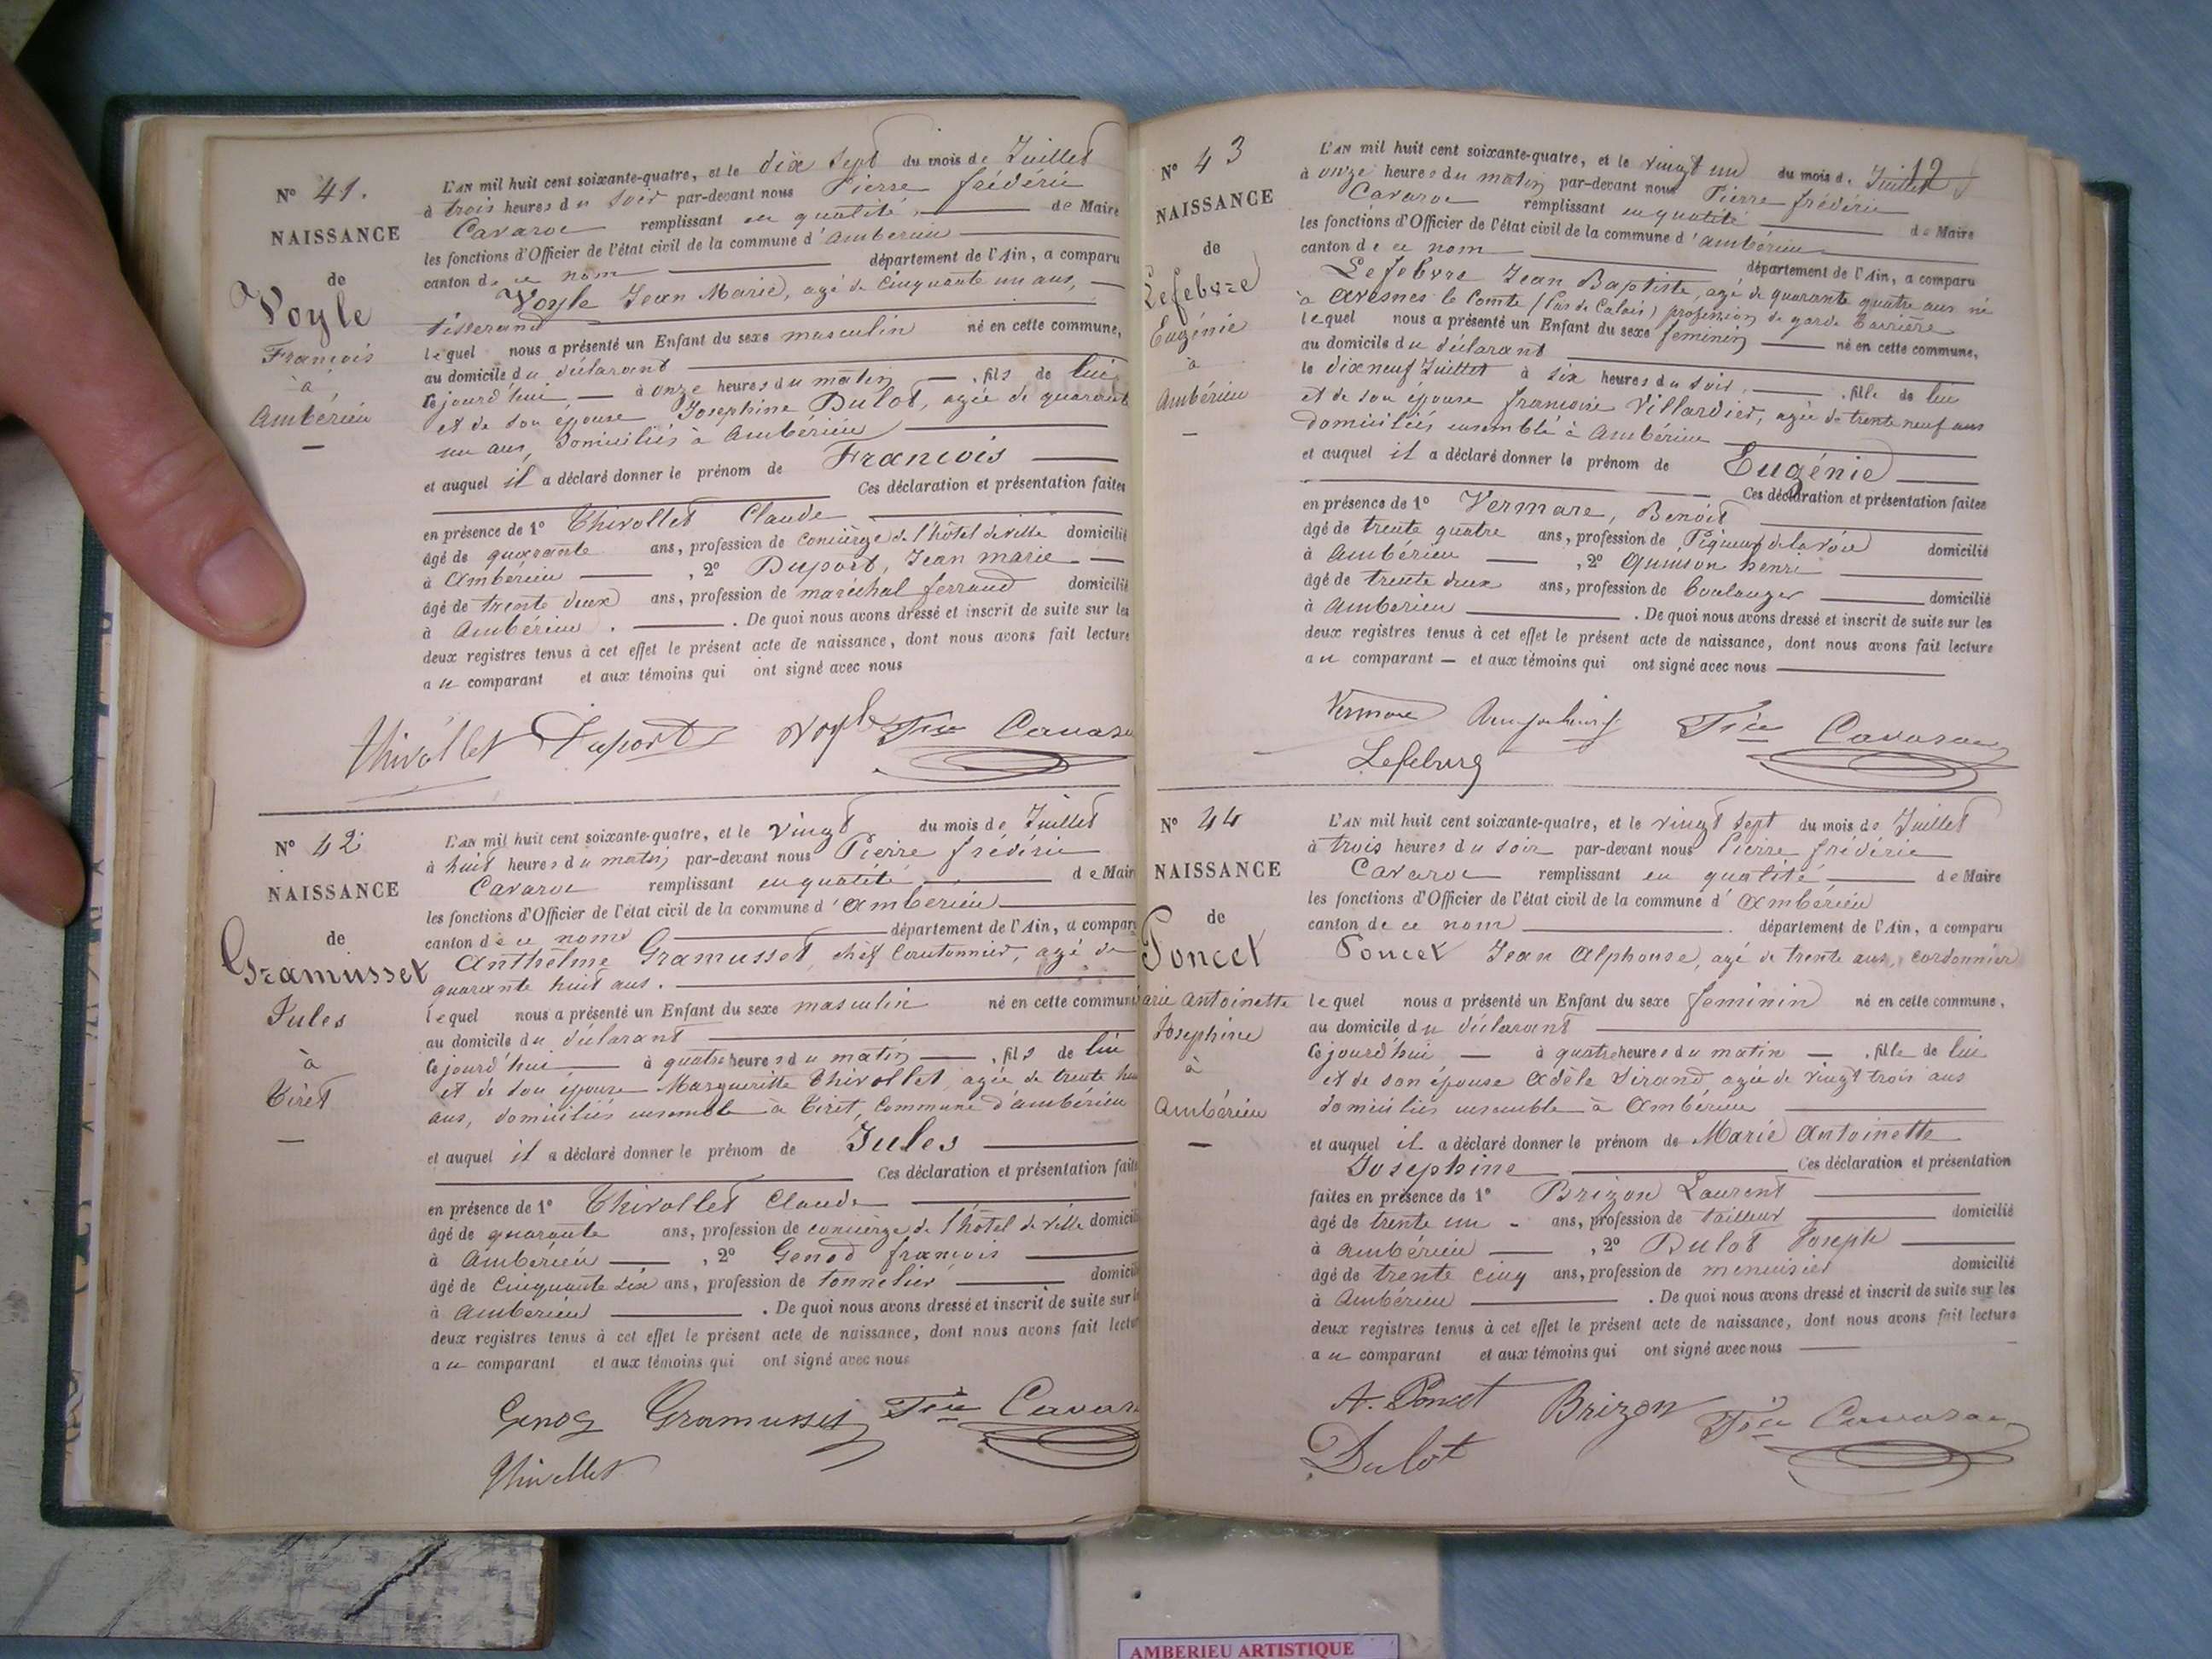 N° 41.
NAISSANCE
de
Voyle
François
à
Ambérieu
L'AN mil huit cent soixante-quatre, et le dix sept du mois de Juillet
à trois heures du soir par-devant nous Pierre frédéric
Cavaroc remplissant en qualité de Maire
les fonctions d'Officier de l'état civil de la commune d'ambérieu
canton de ce nom département de l'Ain, a comparu
Voyle Jean Marie, agé de cinquante un ans,
tisserand
lequel nous a présenté un Enfant du sexe masculin né en cette commune,
au domicile du déclarant
cejourd'hui à onze heures du matin, fils de lui
et de son épouse Josephine Dulot, agée de quarante
un ans, domiciliés à Ambérieu
et auquel il a déclaré donner le prénom de François
Ces déclaration et présentation faites
en présence de 1° Thivollet Claude
âgé de quarante ans, profession de concierge de l'hôtel de ville domicilié
à Ambérieu , 2° Duport, Jean marie
âgé de trente deux ans, profession de maréchal ferrand domicilié
à Ambérieu . De quoi nous avons dressé et inscrit de suite sur les
deux registres tenus à cet effet le présent acte de naissance, dont nous avons fait lecture
au comparant et aux témoins qui ont signé avec nous
thivollet Duport voyle Fic Cavaroc
N° 42
NAISSANCE
de
Gramusset
Jules
à
Tiret
L'AN mil huit cent soixante-quatre, et le vingt du mois de Juillet
à huit heures du matin par-devant nous Pierre frédéric
Cavaroc remplissant en qualité de Maire
les fonctions d'Officier de l'état civil de la commune d'ambérieu
canton de ce nom département de l'Ain, a comparu
Anthelme Gramusset, chef Cantonnier, agé de
quarante huit ans.
lequel nous a présenté un Enfant du sexe masculin né en cette commune
au domicile du déclarant
cejourd'hui à quatre heures du matin , fils de lui
et de son épouse Margueritte Thivollet, agée de trente
ans, domiciliés ensemble à Tiret, Commune d'ambérieu
et auquel il a déclaré donner le prénom de Jules
Ces déclaration et présentation faites
en présence de 1° Thivollet Claude
âgé de quarante ans, profession de concierge de l'hôtel de ville domicilié
à Ambérieu , 2° Genod françois
âgé de cinquante six ans, profession de tonnelier domicilié
à Ambérieu . De quoi nous avons dressé et inscrit de suite sur les
deux registres tenus à cet effet le présent acte de naissance, dont nous avons fait lecture
au comparant et aux témoins qui ont signé avec nous
Genod Gramusset Fic Cavaroc
Thivollet
12
N° 43
NAISSANCE
de
Lefebvre
Eugénie
à
Ambérieu
L'AN mil huit cent soixante-quatre, et le vingt un du mois de Juillet
à onze heures du matin par-devant nous Pierre frédéric
Cavaroc remplissant en qualité de Maire
les fonctions d'Officier de l'état civil de la commune d'ambérieu
canton de ce nom département de l'Ain, a comparu
Lefebvre Jean Baptiste, agé de quarante quatre ans né
à avesnes le Comte (Pas de Calais) profession de garde barrière
lequel nous a présenté un Enfant du sexe feminin né en cette commune,
au domicile du déclarant
le dix neuf Juillet à six heures du soir , fille de lui
et de son épouse françoise Villardier, agée de trente neuf ans
domiciliés ensemble à Ambérieu
et auquel il a déclaré donner le prénom de Eugénie
Ces déclaration et présentation faites
en présence de 1° Vermare, Benoit
âgé de trente quatre ans, profession de Piqueur de la voie domicilié
à Ambérieu , 2° Quinson henri
âgé de trente deux ans, profession de boulanger domicilié
à Ambérieu . De quoi nous avons dressé et inscrit de suite sur les
deux registres tenus à cet effet le présent acte de naissance, dont nous avons fait lecture
au comparant et aux témoins qui ont signé avec nous
Vermare Fic Cavaroc
Lefebvre
N° 44
NAISSANCE
de
Poncet
Marie Antoinette
Josephine
à
Ambérieu
L'AN mil huit cent soixante-quatre, et le vingt sept du mois de Juillet
à trois heures du soir par-devant nous Pierre frédéric
Cavaroc remplissant en qualité de Maire
les fonctions d'Officier de l'état civil de la commune d'Ambérieu
canton de ce nom . département de l'Ain, a comparu
Poncet Jean Alphonse, agé de trente ans, cordonnier
lequel nous a présenté un Enfant du sexe feminin né en cette commune,
au domicile du déclarant
cejourd'hui à quatre heures du matin , fille de lui
et de son épouse Adèle Sirand, agée de vingt trois ans
domiciliés ensemble à Ambérieu
et auquel il a déclaré donner le prénom de Marie Antoinette
Josephine Ces déclaration et présentation
faites en présence de 1° Brizon Laurent
âgé de trente un ans, profession de tailleur domicilié
à Ambérieu , 2° Dulot Joseph
âgé de trente cinq ans, profession de menuisier domicilié
à Ambérieu . De quoi nous avons dressé et inscrit de suite sur les
deux registres tenus à cet effet le présent acte de naissance, dont nous avons fait lecture
au comparant et aux témoins qui ont signé avec nous
A. Poncet Brizon Fic Cavaroc
Dulot
AMBERIEU ARTISTIQUE